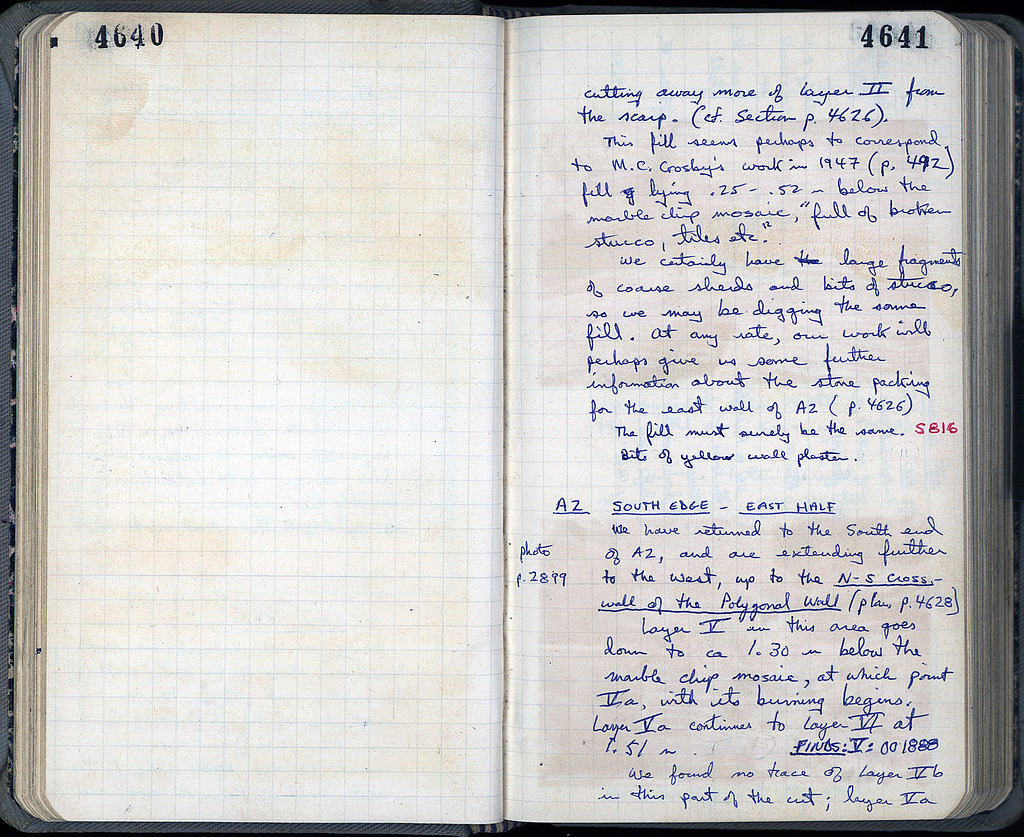 4640
4641
cutting away more of Layer II from
the scarp. (cf. Section p. 4626).
This fill seems perhaps to correspond
to M.C. Crosby's work in 1947 (p. 492)
fill lying .25 - .52 m below the
marble chip mosaic, "full of broken
stucco, tiles etc."
We certainly have the large fragments
of coarse sherds and bits of stucco,
so we may be digging the same
fill. At any rate, our work will
perhaps give us some further
information about the stone packing
for the east wall of A2 (p. 4626)
The fill must surely be the same. SB16
Bits of yellow wall plaster.
A2 SOUTH EDGE - EAST HALF
We have returned to the South end
photo of A2, and are extending further
p. 2899 to the west, up to the N-S cross-
wall of the Polygonal Wall (plan, p. 4628)
Layer V in this area goes
down to ca 1.30 m below the
marble chip mosaic, at which point
Va, with its burning begins.
Layer Va continues to layer VI at
1.51 m. FINDS: V: 001888
We found no trace of Layer Vb
in this part of the cut; layer Va